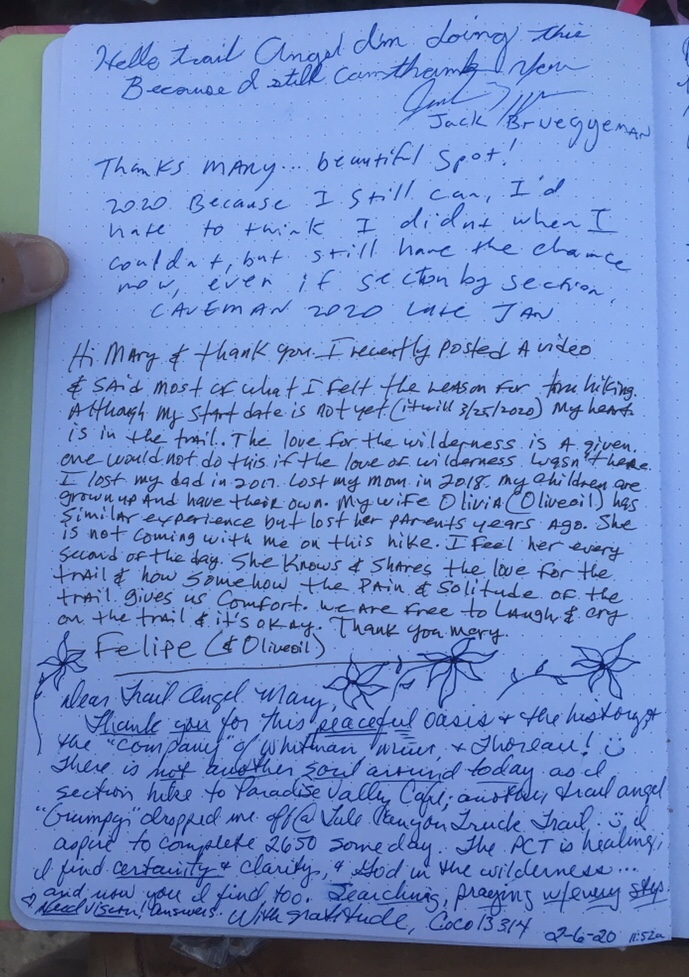 Hello trail Angel I'm doing this
Because I still can thank you
Jack Brueggeman
Thanks Mary... beautiful spot!
2020 Because I still can, I'd
hate to think I didnt when I
couldn't, but still have the chance
now, even if section by section.
CAVEMAN 2020 Late JAN
Hi Mary & thank you. I recently posted A video
& SAid most of what I felt the reason for hiking.
Although my start date is not yet (it will 3/25/2020) My heart
is in the trail. The love for the wilderness is A given.
one would not do this if the love of wilderness wasn't there.
I lost my dad in 2017. Lost my mom in 2018. my children are
grown up And have their own. My wife Olivia (Oliveoil) has
similar experience but lost her parents years ago. She
is not coming with me on this hike. I feel her every
second of the day. She knows & shares the love for the
trail & how somehow the pain & solitude of the
trail gives us comfort. we are free to laugh & cry
on the trail & it's okay. Thank you mary.
Felipe (& Oliveoil)
Dear Trail Angel Mary,
Thank you for this peaceful oasis & the history &
the "company" of Whitman, Muir, & Thoreau! :)
There is not another soul around today as I
section hike to Paradise Valley Cafe; another trail angel
"Grumpy" dropped me off @ Tule Canyon Truck Trail :) I
aspire to complete 2650 someday. The PCT is healing;
I find certainty & clarity, & God in the wilderness...
and now you I find too. Searching, praying w/every step.
& Need vision! answers. With gratitude, Coco13314
2-6-20 11:52a